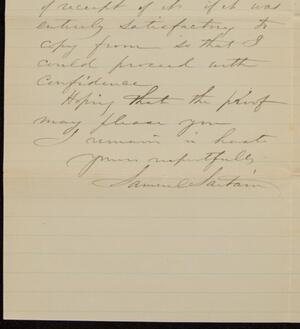 of receipt of it & if it was
entirely satisfactory to
copy from so that I
could proceed with
confidence
Hoping that the proof
may please you
I remain in haste
yours respectfully
Samuel Sartain